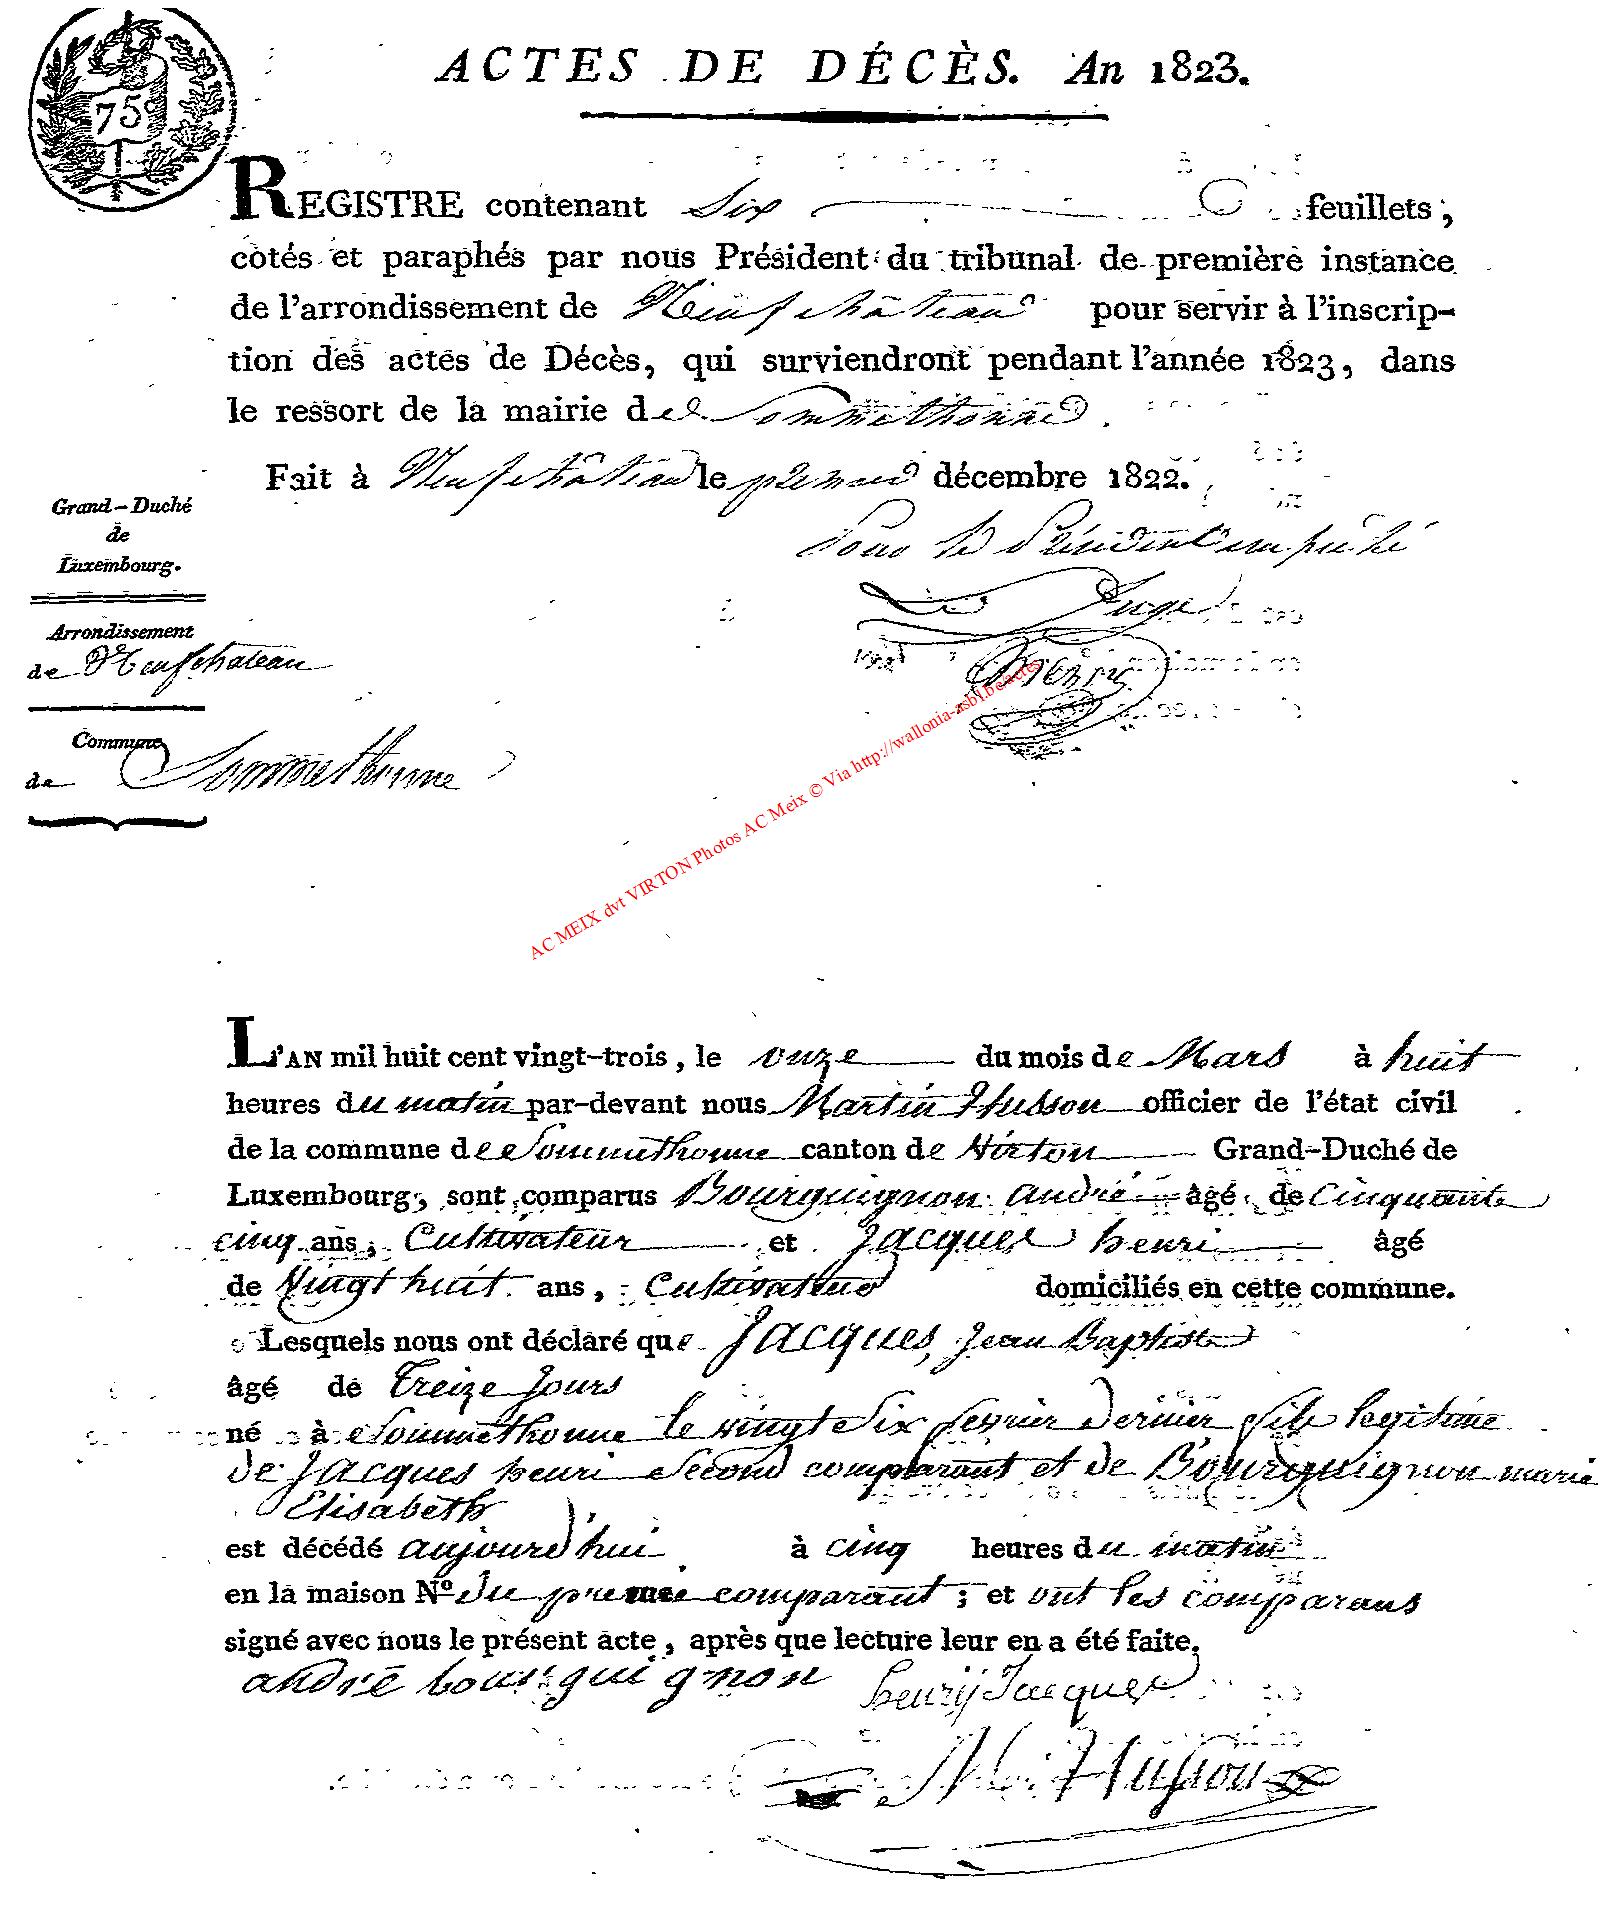 75c
ACTES DE DÉCÈS. An 1823.
REGISTRE contenant Six feuillets,
cotés et paraphés par nous Président du tribunal de première instance
de l'arrondissement de Neufchâteau pour servir à l'inscrip-
tion des actes de Décès, qui surviendront pendant l'année 1823, dans
le ressort de la mairie de Sommethonne.
Fait à Neufchâteau le premier décembre 1822.
Pour le Président empêché
Juge
Grand-Duché
de
Luxembourg.
Arrondissement
de Neufchateau
Commune
de Sommethonne
AC MEIX dvt VIRTON Photos AC Meix © Via http://wallonia-asbl.be
L'AN mil huit cent vingt-trois, le onze du mois de Mars à huit
heures du matin par-devant nous Martin Husson officier de l'état civil
de la commune de Sommethonne canton de Virton Grand-Duché de
Luxembourg, sont comparus Bourguignon andré âgé de Cinquante
cinq ans, Cultivateur et Jacques henri âgé
de Vingt huit ans, Cultivateur domiciliés en cette commune.
Lesquels nous ont déclaré que Jacques, Jean Baptiste
âgé de Treize Jours
né à Sommethonne le vingt Six fevrier dernier fils legitime
de Jacques henri Second comparant et de Bourguignon marie
Elisabeth
est décédé aujourd'hui à cinq heures du matin
en la maison No. du premier comparant; et ont les comparans
signé avec nous le présent acte, après que lecture leur en a été faite.
andré bourguignon henrij Jacques
Husson